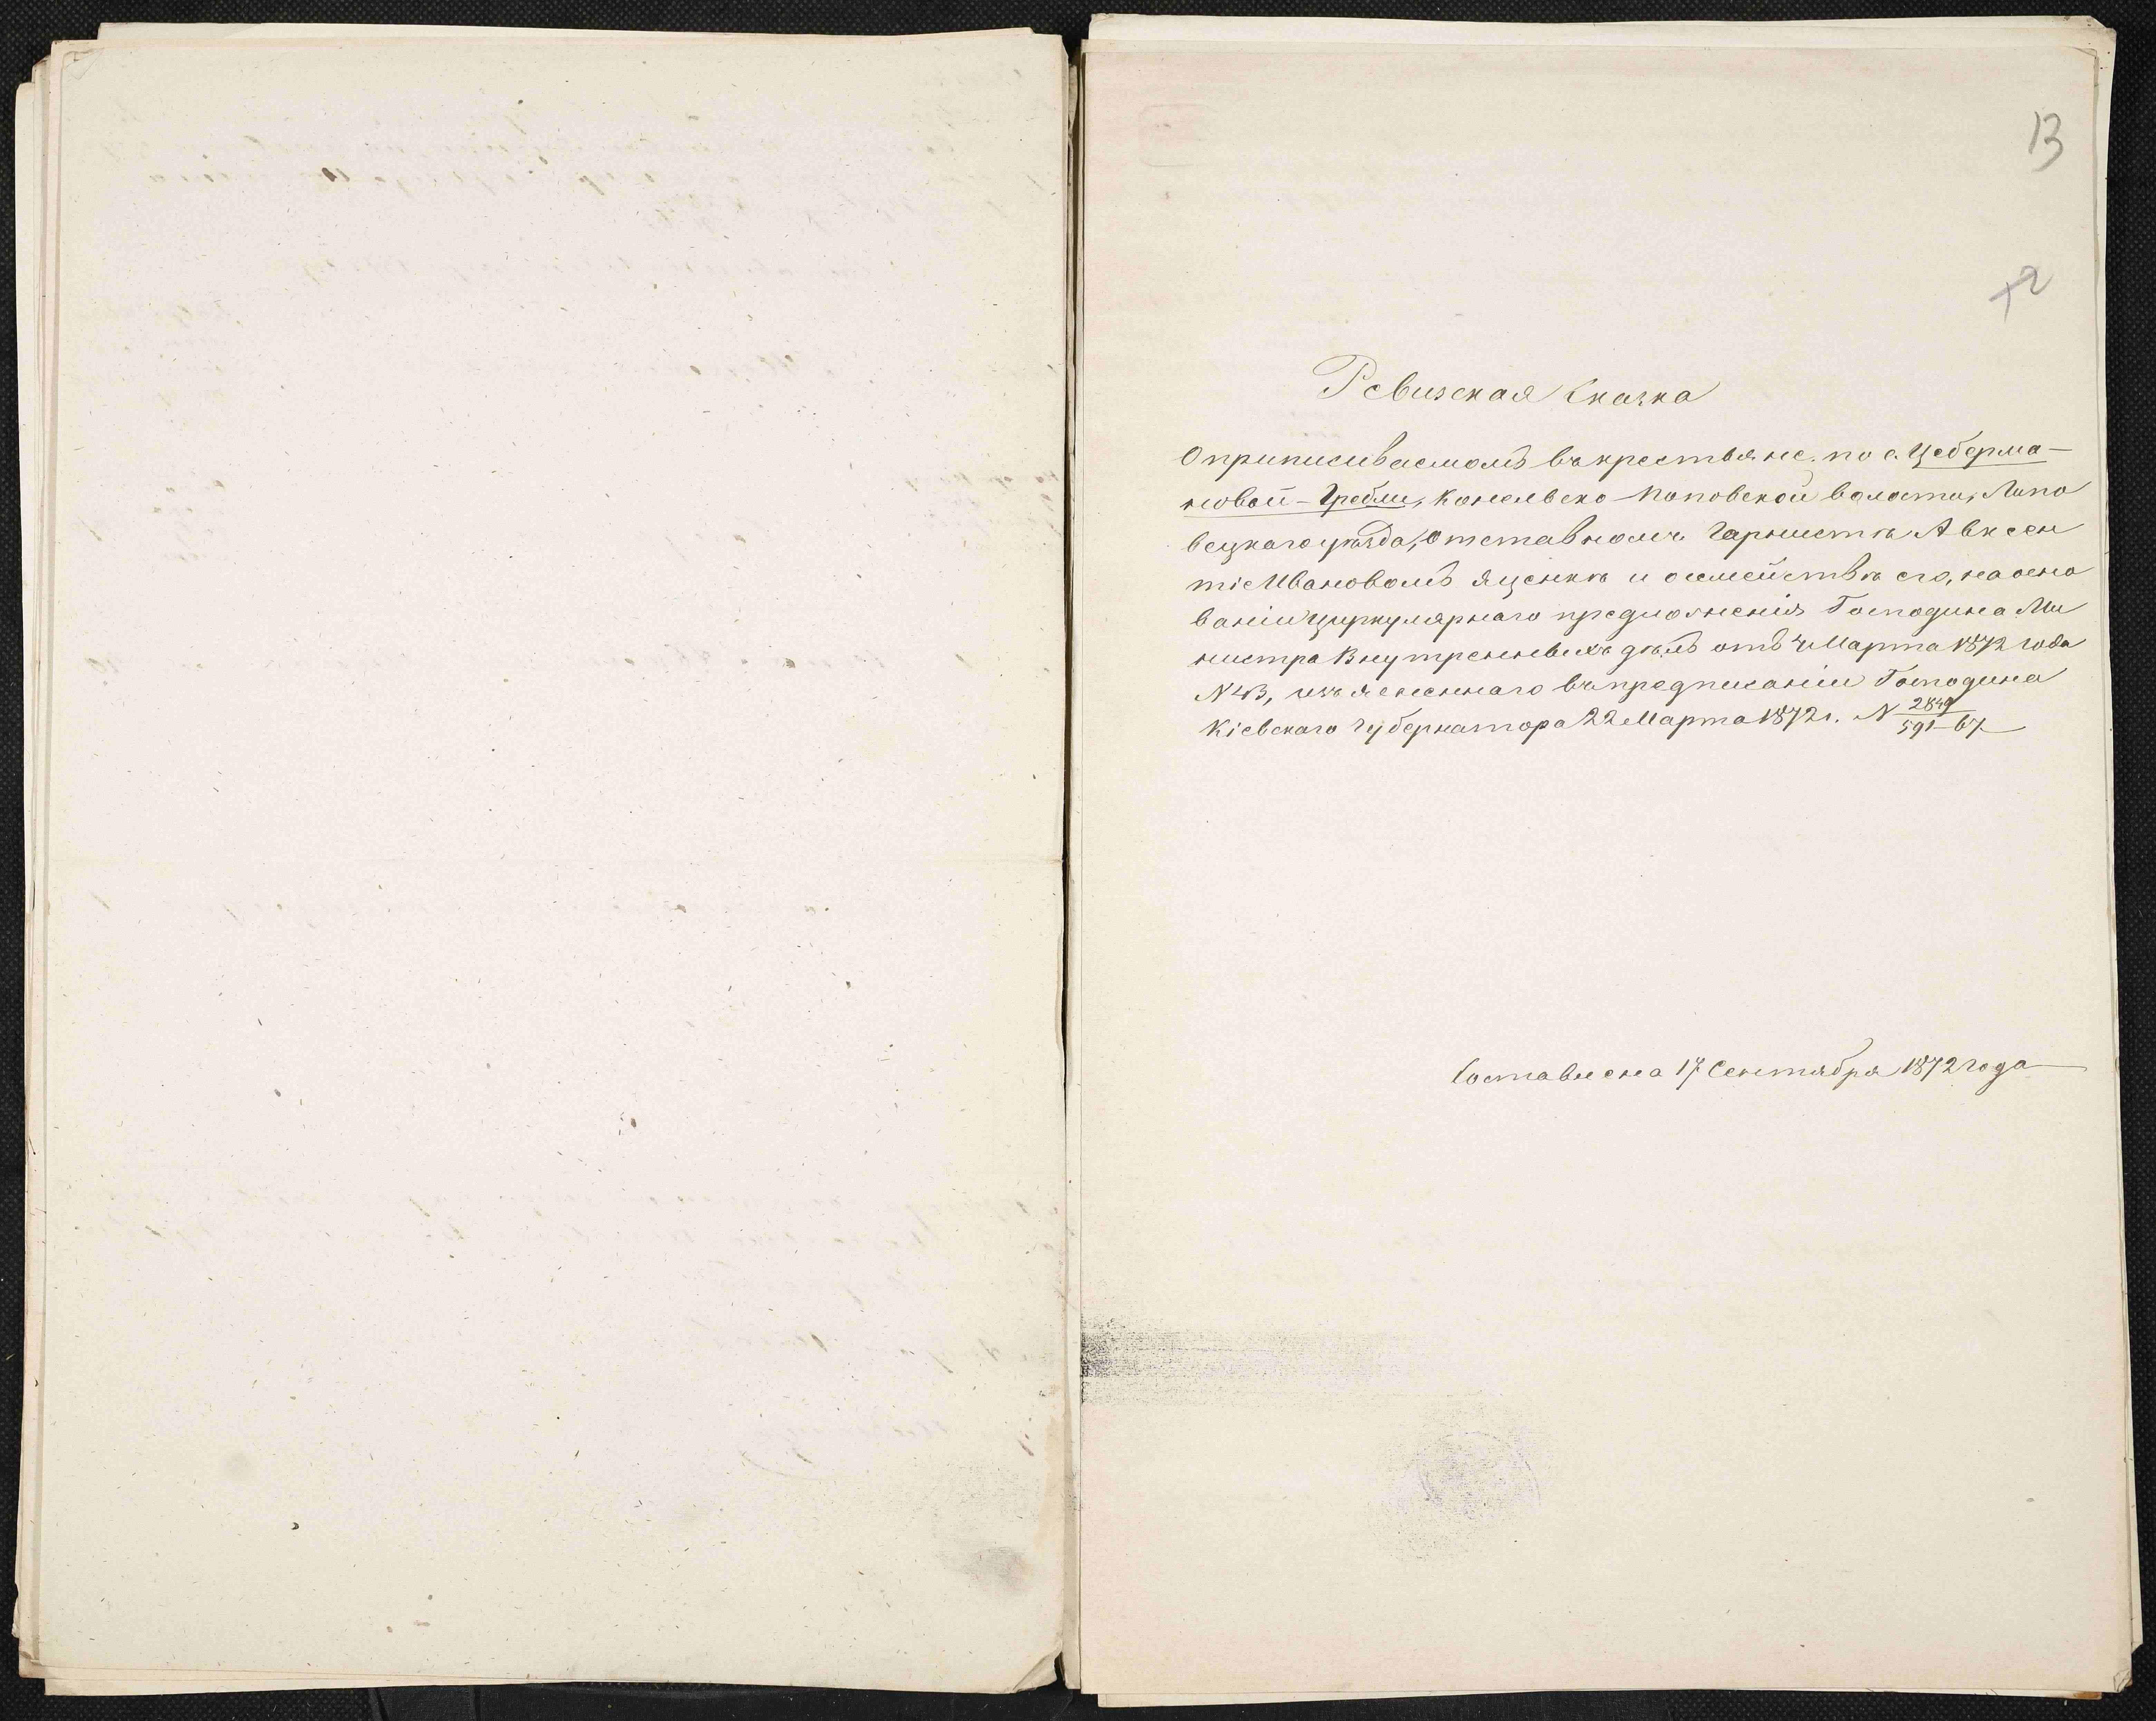 13
Ревизская Сказка
О приписиваемомъ въ крестьяне по с. Цеберма-
новой-Гребли, Конельско-Поповской волости, Липо
вецкаго уѣзда, Отставномъ Горнистѣ Авксен
тіе Ивановомъ Яценкѣ и о семействѣ его, на осно
ваніи циркулярнаго предложенія Господина Ми
нистра Внутренневихъ дѣлъ отъ 4 Марта 1872 года
N 43, изъясненнаго въ предписаніи Господина
Кіевскаго Губернатора 22 Марта 1872 г. N 2849/591-67.
Составлена 17 Сентября 1872 года